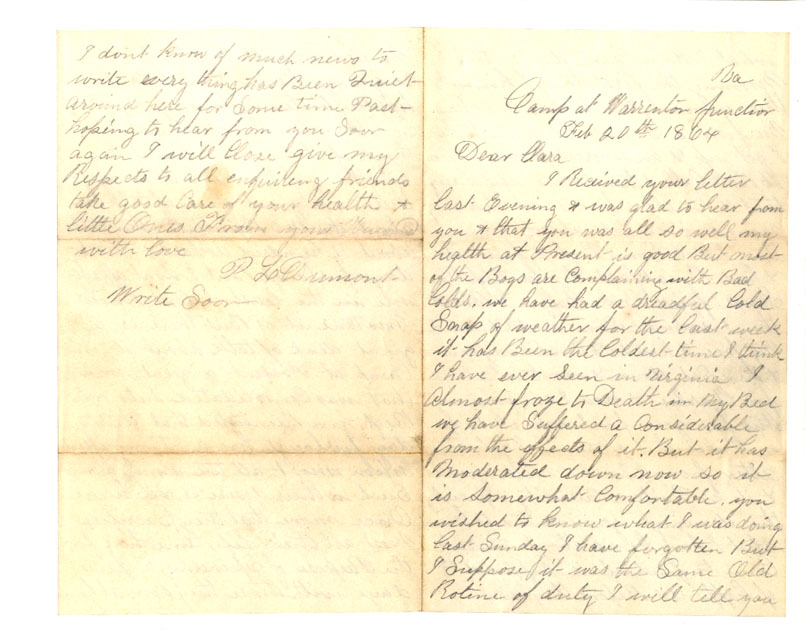 Va
Camp at Warrenton Junction
Feb 20th 1864
Dear Clara
I Recived your letter
last Evening & was glad to hear from
you & that you was all so well my
health at Present is good But most
of the Boys are Complaining with Bad
Colds. we have had a dreadful Cold
Snap of weather for the last week
it has Been the Coldest time I think
I have ever Seen in Virginia I
Almost froze to Death in My Bed
we have Suffered a Considerable
from the effects of it. But it has
Moderated down now so it
is Somewhat Comfortable. you
wished to know what I was doing
last Sunday I have forgotten But
I Suppose it was the Same Old
Rotine of duty I will tell you
I dont know of much news to
write every thing has Been Quiet
around here for Some time Past
hoping to hear from you Soon
again I will Close give my
Respects to all enquiring friends
take good Care of your health &
little Ones From your
with love
P L Dumont
Write Soon